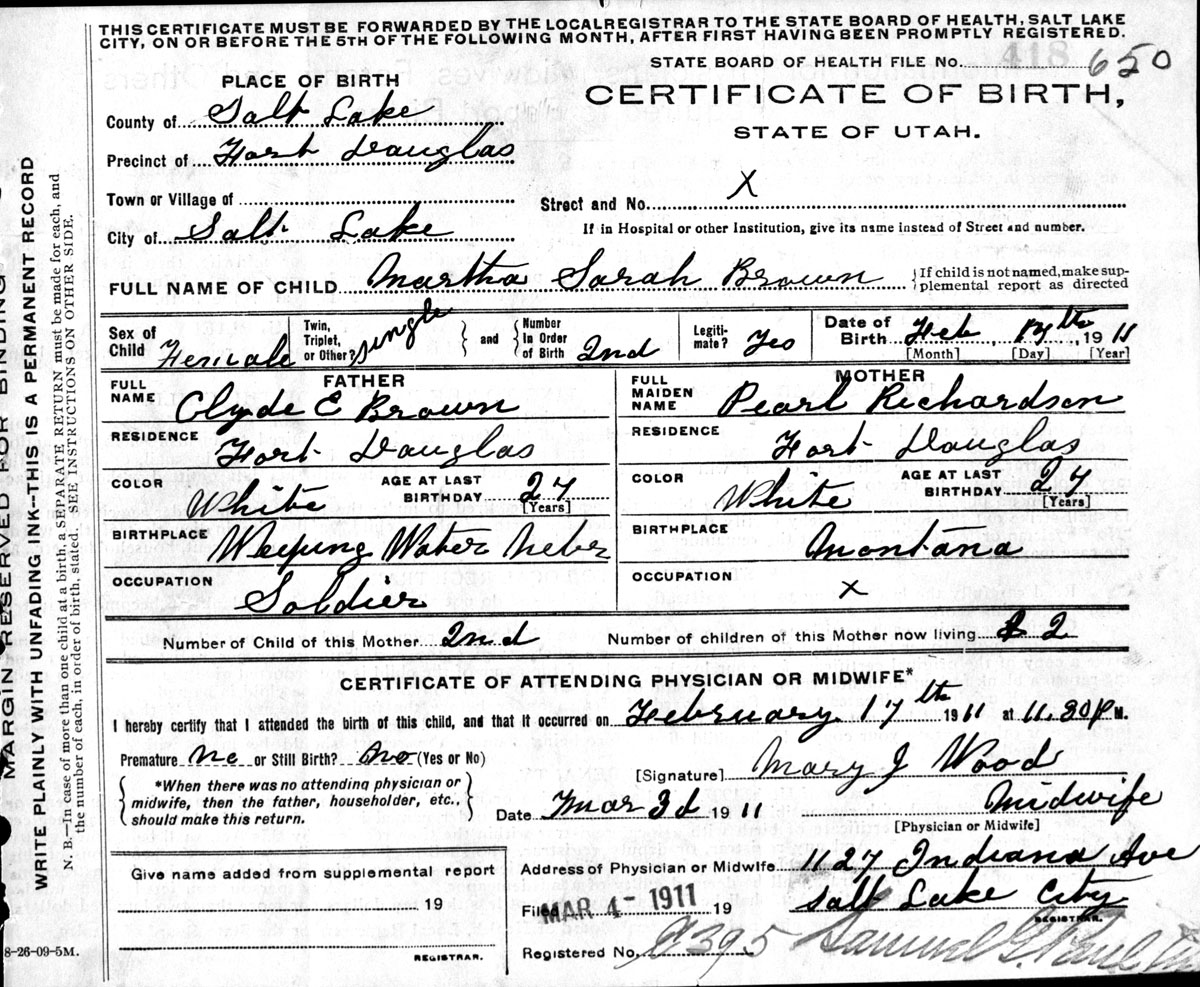 THIS CERTIFICATE MUST BE FORWARDED BY THE LOCAL REGISTRAR TO THE STATE BOARD OF HEALTH, SALT LAKE
CITY, ON OR BEFORE THE 5TH OF THE FOLLOWING MONTH, AFTER FIRST HAVING BEEN PROMPTLY REGISTERED.
STATE BOARD OF HEALTH FILE No. 418 650
PLACE OF BIRTH
CERTIFICATE OF BIRTH,
STATE OF UTAH.
County of Salt Lake
Precinct of Fort Douglas
Town or Village of
Street and No. X
City of Salt Lake
If in Hospital or other Institution, give its name instead of Street and number.
FULL NAME OF CHILD Martha Sarah Brown
If child is not named, make sup-
plemental report as directed
Sex of Child Female
Twin, Triplet, or Other? Single
and
Number In Order of Birth 2nd
Legiti-mate? Yes
Date of Birth Feb 17th, 1911
[Month] [Day] [Year]
FATHER
FULL NAME Clyde E Brown
RESIDENCE Fort Douglas
COLOR White
AGE AT LAST BIRTHDAY 27
[Years]
BIRTHPLACE Weeping Water Nebr
OCCUPATION Soldier
MOTHER
FULL MAIDEN NAME Pearl Richardson
RESIDENCE Fort Douglas
COLOR White
AGE AT LAST BIRTHDAY 27
[Years]
BIRTHPLACE Montana
OCCUPATION X
Number of Child of this Mother 2nd
Number of children of this Mother now living 2
CERTIFICATE OF ATTENDING PHYSICIAN OR MIDWIFE*
I hereby certify that I attended the birth of this child, and that it occurred on February 17th 1911 at 11.30 P M.
Premature no or Still Birth? no (Yes or No)
*When there was no attending physician or
midwife, then the father, householder, etc.,
should make this return.
[Signature] Mary J Wood
Date Mar 3d 1911
Midwife
[Physician or Midwife]
Give name added from supplemental report
19
REGISTRAR.
Address of Physician or Midwife 1127 Indiana Ave
Salt Lake City
Filed MAR 4-1911 19
REGISTRAR.
Registered No. 395
Samuel G. Paul
MARGIN RESERVED FOR BINDING
WRITE PLAINLY WITH UNFADING INK--THIS IS A PERMANENT RECORD
N. B.—In case of more than one child at a birth, a SEPARATE RETURN must be made for each, and
the number of each, in order of birth, stated. SEE INSTRUCTIONS ON OTHER SIDE.
8-26-09-5M.